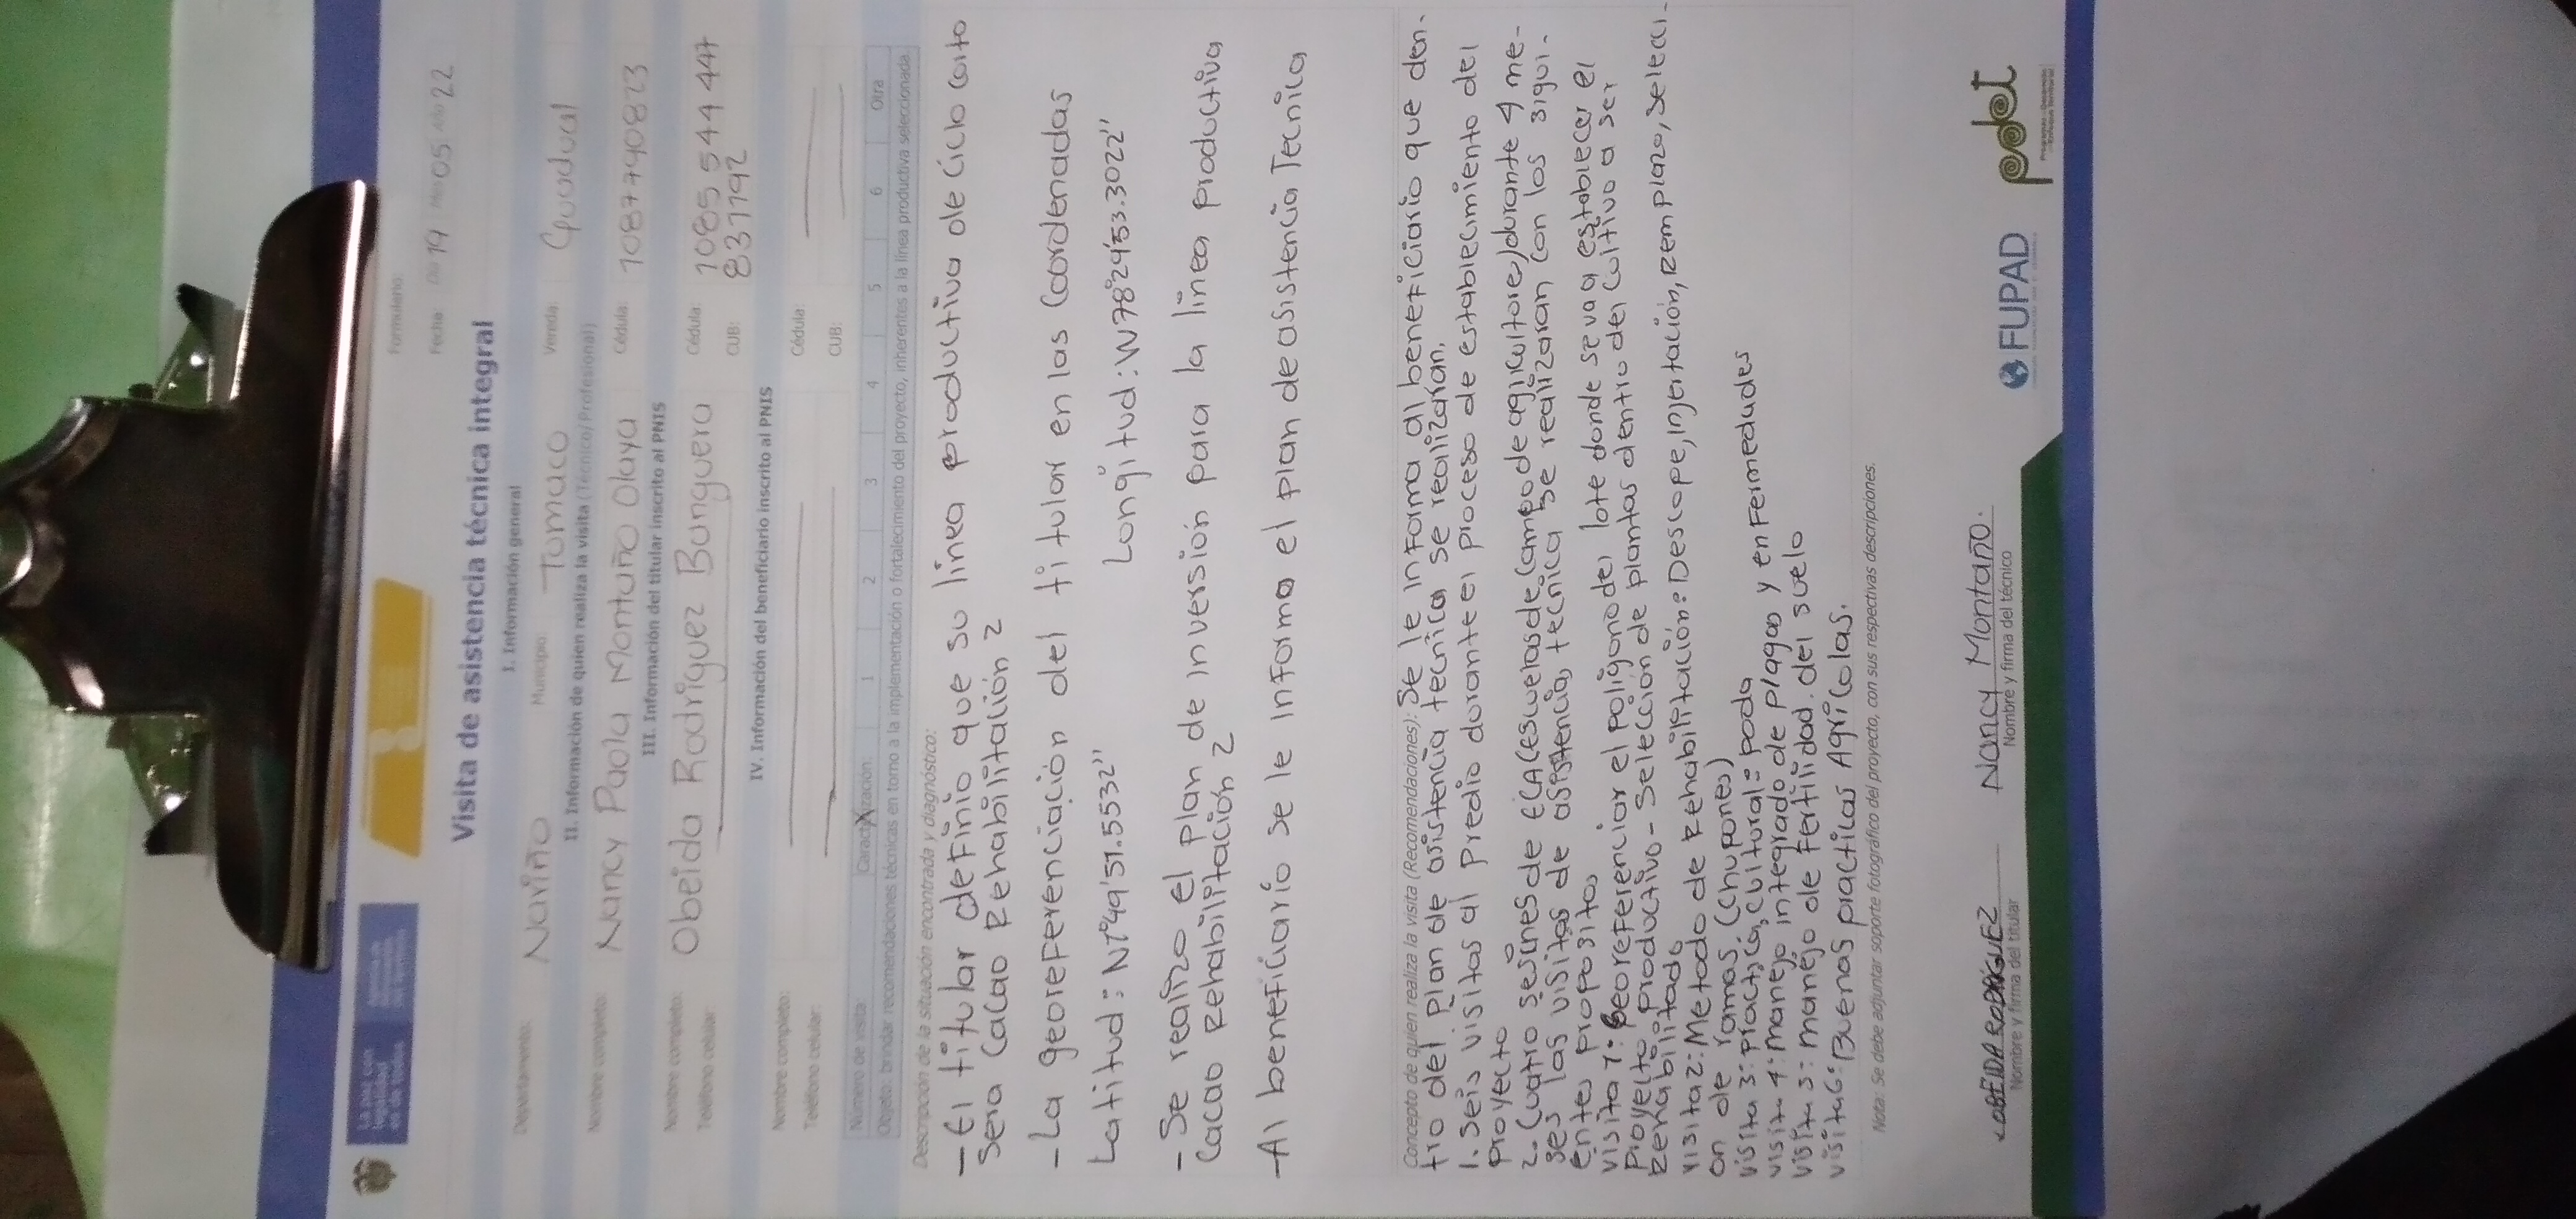 La paz con
legalidad
es de todos
Formulario:
Visita de asistencia técnica integral
Fecha: Día 19 Mes 05 Año 22
I. Información general
Departamento: Nariño Municipio: Tumaco Vereda: Guadual
II. Información de quien realiza la visita (Técnico/Profesional)
Nombre completo: Nancy Paola Montaño Olaya Cédula: 1087790823
III. Información del titular inscrito al PNIS
Nombre completo: Obeida Rodriguez Banguera Cédula: 1085 544 447
Teléfono celular: CUB: 8311192
IV. Información del beneficiario inscrito al PNIS
Nombre completo: Cédula:
Teléfono celular: CUB:
Número de visita: Caracterización X 1 2 3 4 5 6 Otra
Objeto: brindar recomendaciones técnicas en torno a la implementación o fortalecimiento del proyecto, inherentes a la línea productiva seleccionada.
Descripción de la situación encontrada y diagnóstico:
- El titular definio que su linea productiva de ciclo corto
Sera Cacao Rehabilitación 2
- La georeferenciación del titular en las Coordenadas
Latitud: N1°49'51.5532" Longitud: W78°24'53.3022"
- Se realizo el plan de inversión para la linea productiva
Cacao Rehabilitación 2
- Al beneficiario se le informo el plan de asistencia Tecnica
Concepto de quien realiza la visita (Recomendaciones): Se le informa al beneficiario que den-
tro del plan de asistencia tecnica se realizaran.
1. Seis visitas al Predio durante el proceso de establecimiento del
proyecto
2. Cuatro sesiones de ECA (escuelas de campo de agricultores) durante 4 me-
ses las visitas de asistencia tecnica se realizaran con los sigui-
entes propositos
visita 1: Georeferenciar el poligono del lote donde se va a establecer el
proyecto productivo - Selección de plantas dentro del cultivo a ser
Rehabilitado
visita 2: Metodo de Rehabilitación: Descope, injertación, Remplazo, Selecci-
on de ramas (Chupones)
visita 3: practica cultural: poda
visita 4: manejo integrado de plagas y enfermedades
visita 5: manejo de fertilidad del suelo
visita 6: Buenas practicas Agricolas.
Nota: Se debe adjuntar soporte fotográfico del proyecto, con sus respectivas descripciones.
OBEIDA RODRÍGUEZ Nancy Montaño.
Nombre y firma del titular Nombre y firma del técnico
FUPAD
pdet